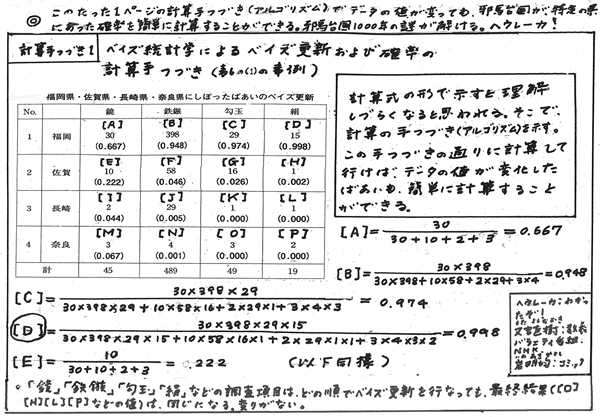 ◎ このたった1ページの計算手つづき(アルゴリズム)でデータの値が変っても、邪馬台国が特定の県
にあった確率を簡単に計算することができる。邪馬台国1000年の謎が解ける。ヘウレーカ!
計算手つづき1 ベイズ統計学によるベイズ更新および確率の
計算手つづき(表6の(1)の事例)
福岡県・佐賀県・長崎県・奈良県にしぼったばあいのベイズ更新
No. 鏡 鉄鏃 勾玉 絹
[A] [B] [C] [D]
1 福岡 30 398 29 15
(0.667) (0.948) (0.974) (0.998)
[E] [F] [G] [H]
2 佐賀 10 58 16 1
(0.222) (0.046) (0.026) (0.002)
[I] [J] [K] [L]
3 長崎 2 29 1 1
(0.044) (0.005) (0.000) (0.000)
[M] [N] [O] [P]
4 奈良 3 4 3 2
(0.067) (0.001) (0.000) (0.000)
計 45 489 49 19
計算式の形で示すと理解
しづらくなると思われる。そこで、
計算の手つづき(アルゴリズム)を示す。
この手つづきの通りに計算して
行けば、データの値が変化した
ばあいも、簡単に計算すること
ができる。
[A]=30/30+10+2+3=0.667
[B]=30×398/30×398+10×58+2×29+3×4=0.948
[C]=30×398×29/30×398×29+10×58×16+2×29×1+3×4×3=0.974
[D]=30×398×29×15/30×398×29×15+10×58×16×1+2×29×1×1+3×4×3×2=0.998
[E]=10/30+10+2+3=.222 (以下同様)
ヘウレーカ:わかっ
たぞ!
NHK
。「鏡」「鉄鏃」「勾玉」「絹」などの調査項目は、どの順でベイズ更新を行なっても、最終結果([D]
[H][L][P]などの値)は、同じになる。変りがない。